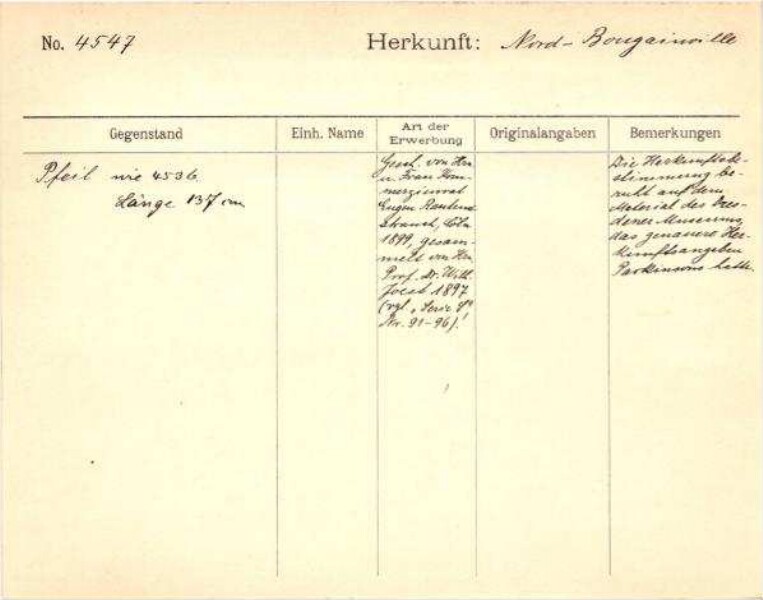 No. 4547 Herkunft: Nord-Bougainville
Gegenstand Einh. Name Art der Erwerbung Originalangaben Bemerkungen
Pfeil wie 4536
Länge 137 cm
Gesch. von Hrn
u. Frau Kom-
merzienrat
Eugen Rauten-
strauch, Cöln
1899, gesam-
melt von Hrn
Prof. Dr. Wilh.
Joest 1897
(vgl. "Serie
Nr. 91-96)!
Die Herkunftsbe-
stimmung be-
ruht auf dem
Material des Dres-
dener Museums,
das genauere Her-
kunftsangaben
Parkinsons hatte.